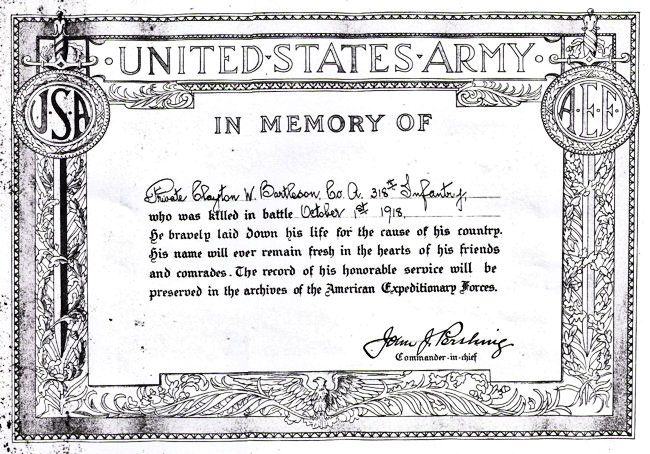 ·UNITED·STATES·ARMY·
U·S·A
A·E·F·
IN MEMORY OF
Private Clayton W. Bartleson, Co. A. 318th Infantry,
who was killed in battle October 1st 1918,
He bravely laid down his life for the cause of his country.
His name will ever remain fresh in the hearts of his friends
and comrades. The record of his honorable service will be
preserved in the archives of the American Expeditionary Forces.
John J. Pershing
Commander-in-chief